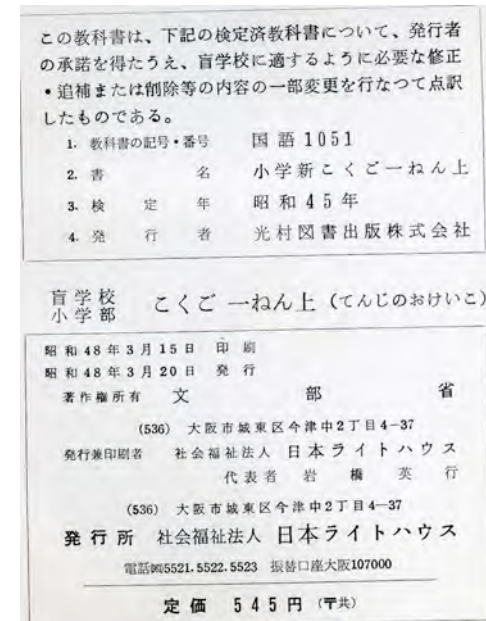 この教科書は、下記の検定済教科書について、発行者
の承諾を得たうえ、盲学校に適するように必要な修正
・追補または削除等の内容の一部変更を行なつて点訳
したものである。
1. 教科書の記号・番号 国語1051
2. 書名 小学新こくご一ねん上
3. 検定年 昭和45年
4. 発行者 光村図書出版株式会社
盲学校
小学部 こくご 一ねん上(てんじのおけいこ)
昭和48年3月15日 印刷
昭和48年3月20日 発行
著作権所有 文部省
(536) 大阪市城東区今津中2丁目4-37
発行兼印刷者 社会福祉法人 日本ライトハウス
代表者 岩橋英行
(536) 大阪市城東区今津中2丁目4—37
発行所 社会福祉法人 日本ライトハウス
電話㈹5521.5522.5523 振替口座大阪107000
定価 545円(〒共)